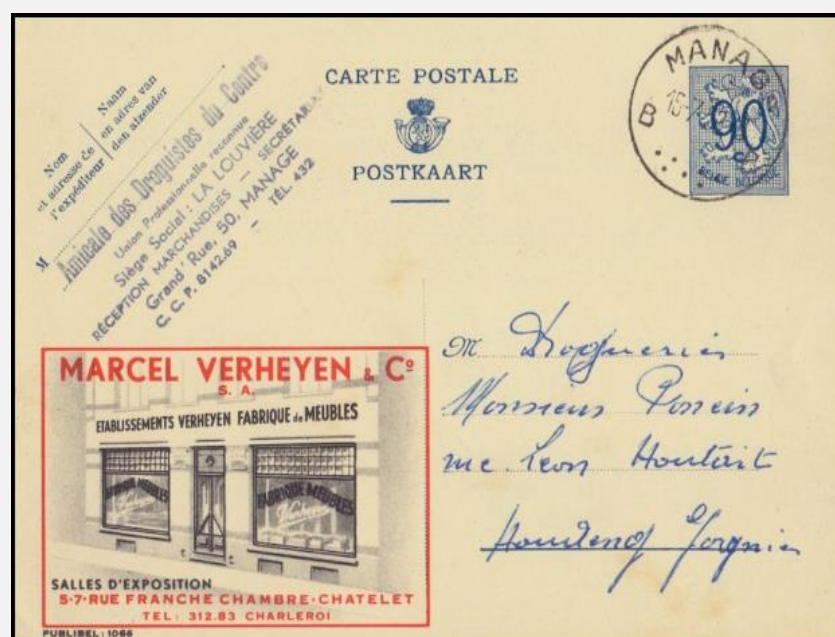 CARTE POSTALE
POSTKAART
Nom
et adresse de
l'expéditeur
Naam
en adres van
den afzender
M
Amicale des Droguistes du Centre
Union Professionnelle reconnue
Siège Social: LA LOUVIÈRE
RÉCEPTION MARCHANDISES — SECRÉTARIAT
Grand'Rue, 50, MANAGE
C. C. P. 8142.69 — TÉL. 432
MANAGE
B
90
c
BELGIE BELGIQUE
MARCEL VERHEYEN & Cº
S. A.
ETABLISSEMENTS VERHEYEN FABRIQUE de MEUBLES
FABRIQUE MEUBLES
FABRIQUE MEUBLES
SALLES D'EXPOSITION
5-7-RUE FRANCHE CHAMBRE-CHATELET
TEL: 312.83 CHARLEROI
PUBLIBEL: 1066
M Drogueries
Monsieur
rue Léon Houtart
Houdeng Goegnies